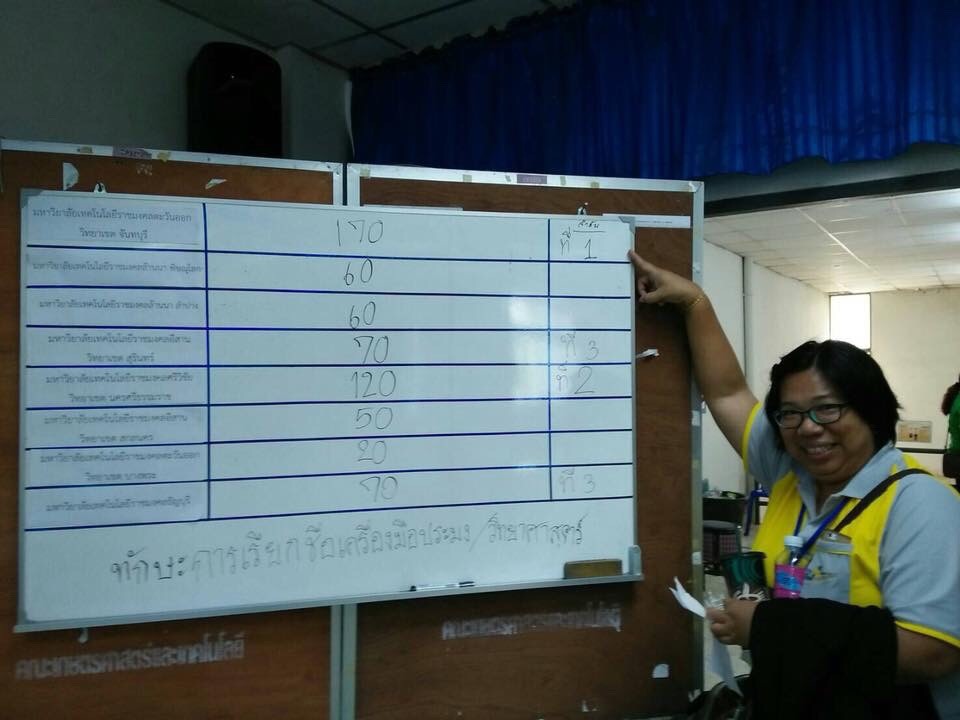 มหาวิทยาลัยเทคโนโลยีราชมงคลตะวันออก
วิทยาเขต จันทบุรี
170
ลำดับ
ที่ 1
มหาวิทยาลัยเทคโนโลยีราชมงคลล้านนา พิษณุโลก
60
มหาวิทยาลัยเทคโนโลยีราชมงคลล้านนา ลำปาง
60
มหาวิทยาลัยเทคโนโลยีราชมงคลอีสาน
วิทยาเขต สุรินทร์
70
ที่ 3
มหาวิทยาลัยเทคโนโลยีราชมงคลศรีวิชัย
วิทยาเขต นครศรีธรรมราช
120
ที่ 2
มหาวิทยาลัยเทคโนโลยีราชมงคลอีสาน
วิทยาเขต สกลนคร
50
มหาวิทยาลัยเทคโนโลยีราชมงคลตะวันออก
วิทยาเขต บางพระ
20
มหาวิทยาลัยเทคโนโลยีราชมงคลธัญบุรี
70
ที่ 3
ทักษะการเรียกชื่อเครื่องมือประมง/วิทยาศาสตร์
คณะเกษตรศาสตร์และเทคโนโลยี
คณะเกษตรศาสตร์และเทคโนโลยี